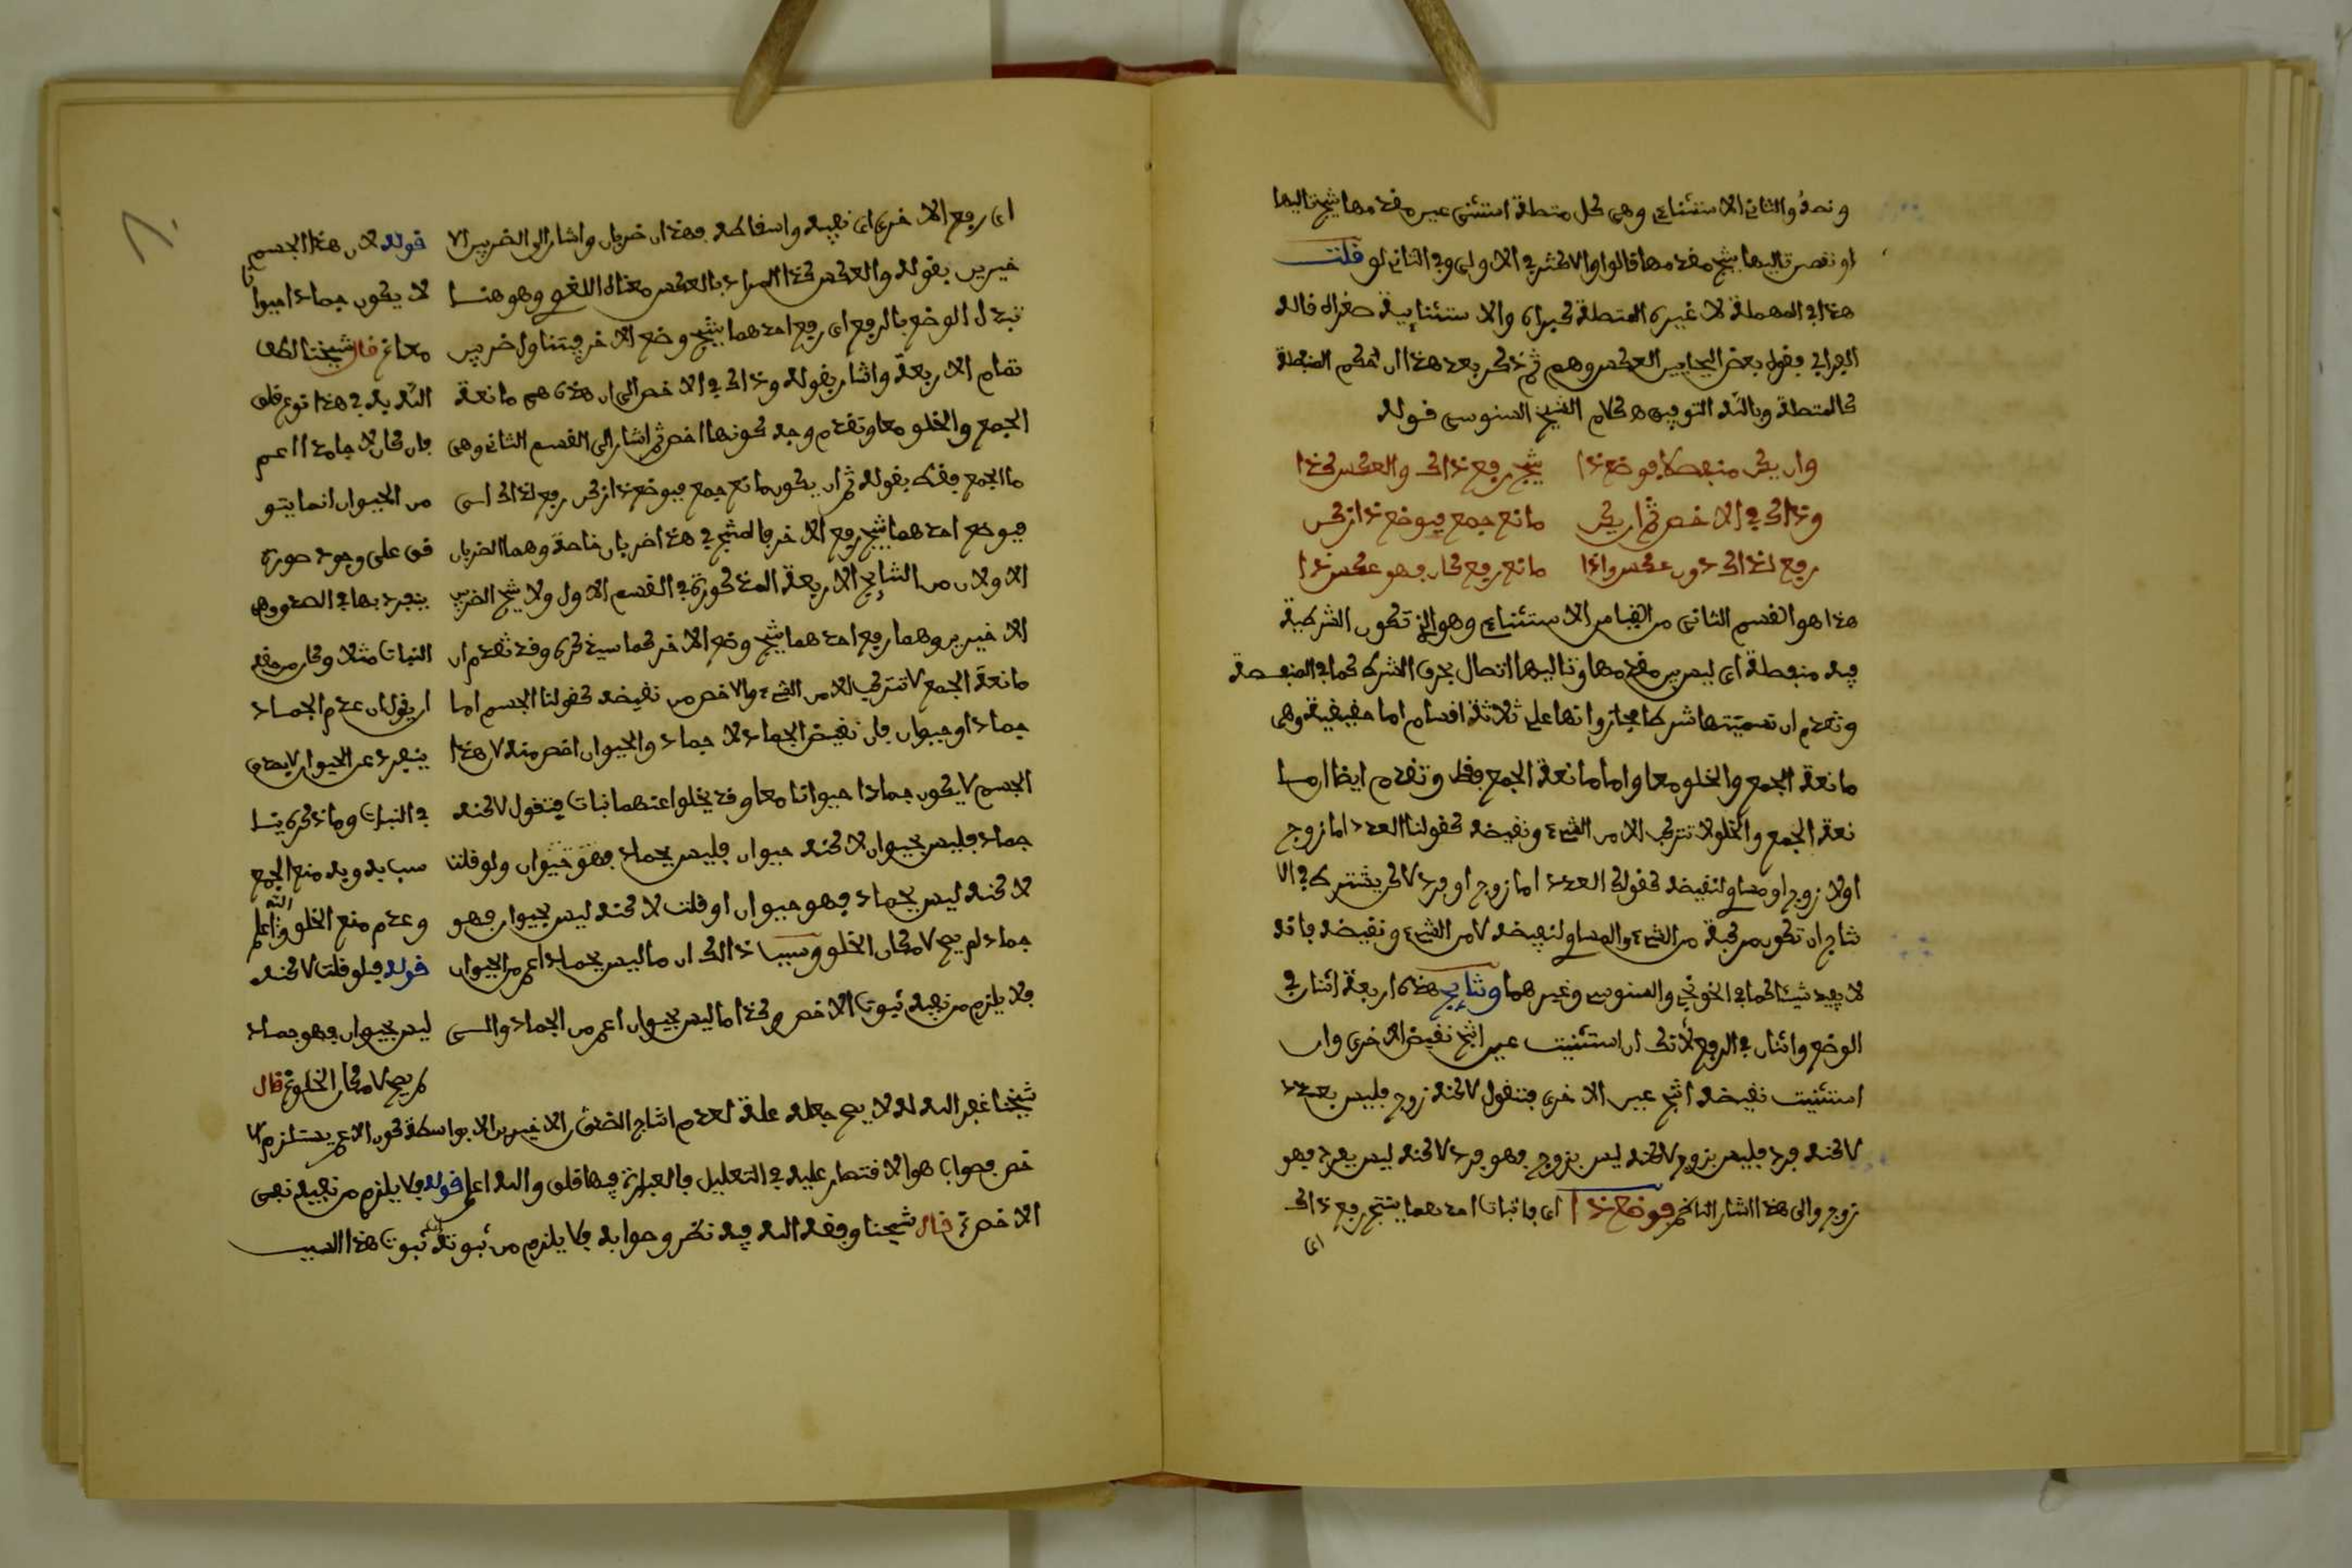 ونصه والثاني الاستثنائي وهي كل متصلة استثني عين مقدمها ينتج تاليها
او نقيض تاليها ينتج مقدمها قالوا والاكثر في الاولى وفي الثاني لو قلت
هذا في المهملة لا غيري المتصلة كبراه والاستثنائية صغراه قاله
بعض العكس وهم ثم ذكر بعد هذا ان حكم المنفصلة
كالمتصلة وبالله التوفيق ه كلام الشيخ السنوسي قوله
وان يكن منفصلا فوضع ذا ينتج رفع ذاك والعكس كذا
وذاك في الاخص ثم ان يكن مانع جمع فبوضع ذا زكن
رفع لذاك دون عكس واذا مانع رفع كان فهو عكس ذا
هذا هو القسم الثاني من القياس الاستثنائي وهو الذي تكون الشرطية
فيه منفصلة اي ليس بين مقدمها وتاليها اتصال بحرف الشرط كما في المنفصلة
وتقدم ان تسميتها شرطا مجاز وانها على ثلاثة اقسام اما حقيقية وهي
مانعة الجمع والخلو معا واما مانعة الجمع فقط وتقدم ايضا ان ما
نعة الجمع والخلو لا تتركب الا من الشيء ونقيضه كقولنا العدد اما زوج
اولا زوج او مساو لنقيضه كقولك العدد اما زوج او فرد لاكن يشترط في الا
نتاج ان تكون مركبة من الشيء والمساوي لنقيضه لا من الشيء ونقيضه فانه
لا يفيد شيئا كما في الخونجي والسنوسي وغيرهما ونتائج هذه اربعة اثنان في
الوضع واثنان في الرفع لانك ان استثنيت عين انتج نقيض الاخرى وان
استثنيت نقيضه انتج عين الاخرى فتقول لاكنه زوج فليس بفرد
لاكنه فرد فليس بزوج لاكنه ليس بزوج فهو فرد لاكنه ليس بفرد فهو
زوج والى هذا اشار الناظم فوضع ذا اي باثبات احدهما ينتج رفع ذاك
اي
اي رفع الاخرى اي نفيه واسقاطه فهذان ضربان واشار الى الضربين الا
خيرين بقوله والعكس كذا المراد بالعكس معناه اللغوي وهو هنا
تبدل الوضع بالرفع اي رفع احدهما ينتج وضع الاخر فيتناول ضربين
تمام الاربعة واشار بقوله وذاك في الاخص الى ان هذه هي مانعة
الجمع والخلو معا وتقدم وجه كونها اخص ثم اشار الى القسم الثاني وهي
مانعة الجمع فقط بقوله ثم ان يكون مانع جمع فبوضع ذا زكن رفع لذاك اي
فبوضع احدهما ينتج رفع الاخر فالمنتج في هذا ضربان خاصة وهما الضربان
الاولان من النتائج الاربعة المذكورة في القسم الاول ولا ينتج الضربين
الاخيرين وهما رفع احدهما ينتج وضع الاخر كما سيذكره وقد تقدم ان
مانعة الجمع لا تتركب الا من الشيء والاخص من نقيضه كقولنا الجسم اما
جماد او حيوان فان نقيض الجماد لا جماد والحيوان اخص منه لان هذا
الجسم لا يكون جمادا حيوانا معا وقد يخلوا عنهما نبات فتقول لاكنه
جماد فليس بحيوان لاكنه حيوان فليس بجماد فهو حيوان ولو قلنا
لاكنه ليس بجماد فهو حيوان او قلت لاكنه ليس بحيوان فهو
جماد لم يصح لامكان الخلو وسبب ذالك ان ما ليس بجماد اعم من الحيوان
فلا يلزم من نفيه ثبوت الاخص وكذا ما ليس بحيوان اعم من الجماد والسي
قوله لان هذا الجسم
لا يكون جمادا حيوا
نا
معا قال شيخنا لطف
الله به في هذا نوع قلق
فان كان لا جامدا اعم
من الحيوان انما يتو
قف على وجود صورة
ينفرد بها في الصدق وهي
النبات مثلا وكان من حقه
ان يقول ان عدم الجماد
ينفرد عن الحيوان لا يصدق
في النبات وما ذكره ينا
سب به وبه منع الجمع
وعدم منع الخلو والله اعلم
قوله فلو قلت لاكنه
ليس بحيوان فهو جماد
لم يصح لامكان الخلو قال
شيخنا غفر الله له لا يصح جعله علة لعدم انتاج الضربين الاخيرين الا بواسطة كون الاعم يستلزم الا
خص فصواب هو الاقتصار عليه في التعليل فالعبارة فيها قلق والله اعلم قوله فلا يلزم من نفيه نفي
الاخص قال شيخنا وفقه الله فيه نظر وصوابه فلا يلزم من ثبوته ثبوت هذا السبب